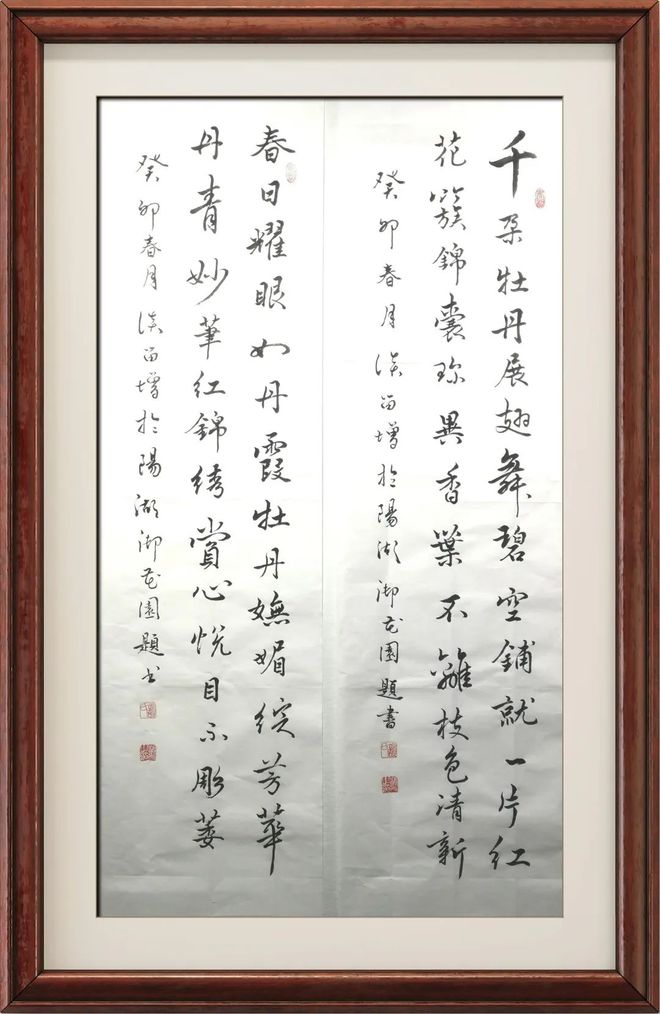 千朵牡丹展翅舞碧空鋪就一片紅
花簇錦囊珎異香葉不離枝色清新
癸卯春月 留增於陽湖御花園題書
春日耀眼如丹霞牡丹嫵媚綻芳華
丹青妙筆紅錦綉賞心悦目不彫萎
癸卯春月 留增於陽湖御花園題书